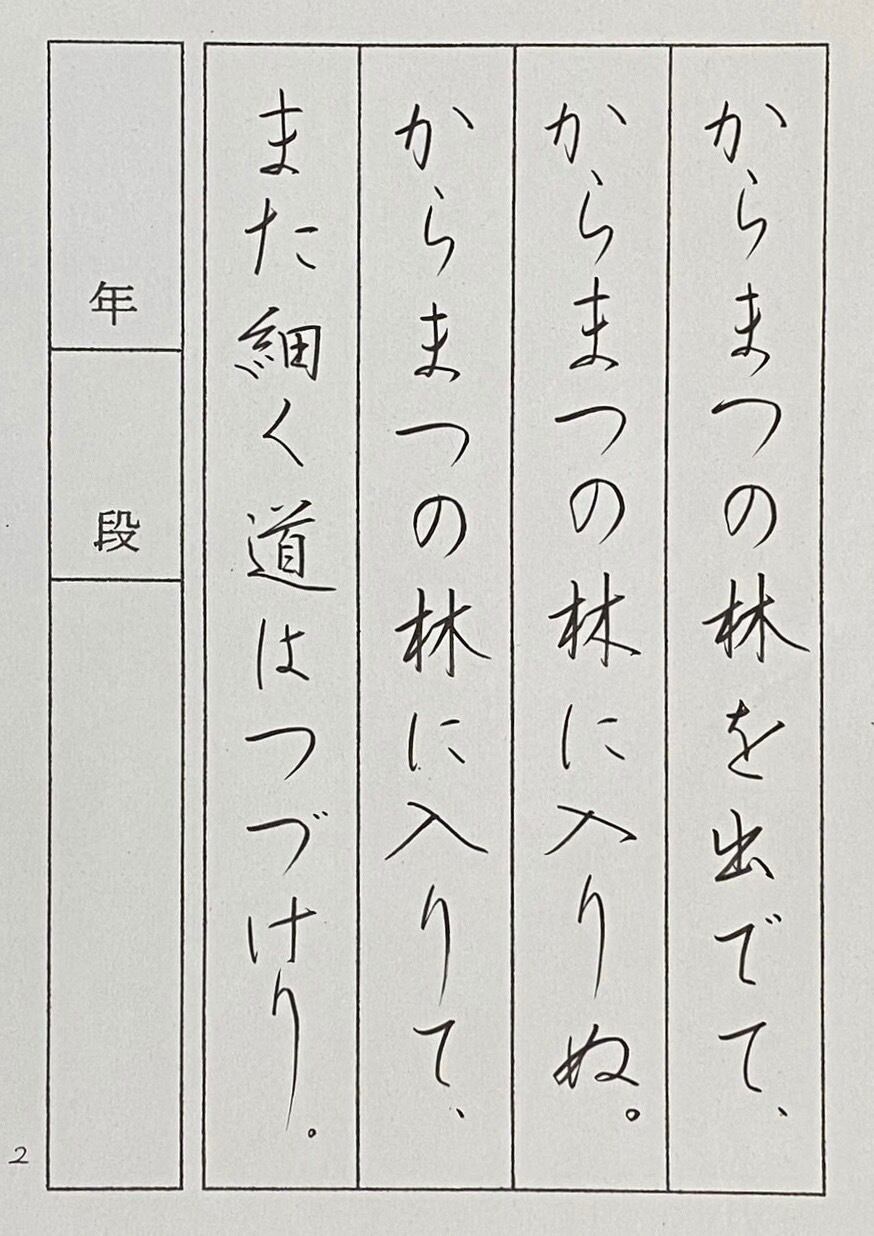 からまつの林を出でて、
からまつの林に入りぬ。
からまつの林に入りて、
また細く道はつづけり。
年
段
2